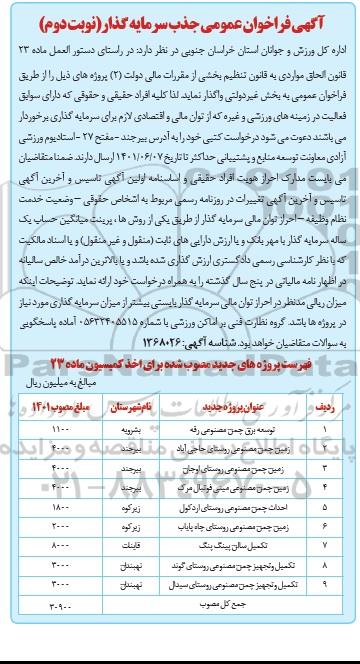 آگهی فراخوان عمومی جذب سرمایه گذار (نوبت دوم)
اداره کل ورزش و جوانان استان خراسان جنوبی در نظر دارد: در راستای دستور العمل ماده ۲۳
قانون الحاق مواردی به قانون تنظیم بخشی از مقررات مالی دولت (۲) پروژه های ذیل را از طریق
فراخوان عمومی به بخش غیردولتی واگذار نماید. لذا کلیه افراد حقیقی و حقوقی که دارای سوابق
فعالیت در زمینه های ورزشی و غیره که از توان مالی و اقتصادی لازم برای سرمایه گذاری برخوردار
می باشند دعوت می شود درخواست کتبی خود را به آدرس بیرجند -مفتح ۲۷ -استادیوم ورزشی
آزادی معاونت توسعه منابع و پشتیبانی حداکثر تا تاریخ ۱۴۰۱/۰۶/۰۷ ارسال دارند. ضمنا متقاضیان
می بایست مدارک احراز هویت افراد حقیقی و اساسنامه اولین آگهی تاسیس و آخرین آگهی
تاسیس و آخرین آگهی تغییرات در روزنامه رسمی مربوط به اشخاص حقوقی -وضعیت خدمت
نظام وظیفه -احراز توان مالی سرمایه گذار از طریق یکی از روش ها، پرینت میانگین حساب یک
ساله سرمایه گذار با مهر بانک و یا ارزش دارایی های ثابت (منقول و غیر منقول) و یا اسناد مالکیت
که با نظر کارشناسی رسمی دادگستری ارزش گذاری شده باشد و یا بالاترین درآمد خالص سالیانه
در اظهار نامه مالیاتی در پنج سال گذشته را به همراه درخواست خود ارائه نماید. توضیحات اینکه
میزان ریالی مدنظر در احراز توان مالی سرمایه گذار بایستی بیشتر از میزان سرمایه گذاری مورد نیاز
در پروژه ها باشد. گروه نظارت فنی بر اماکن ورزشی با شماره ۰۵۶۳۲۴۰۵۵۱۵ آماده پاسخگویی
به سوالات متقاضیان خواهد بود. شناسه آگهی: ۱۳۶۸۰۲۶
فهرست پروژه های جدید مصوب شده برای اخذ کمیسیون ماده ۲۳
مبالغ به میلیون ریال
ردیف عنوان پروژه جدید نام شهرستان مبلغ مصوب ۱۴۰۱
۱ توسعه برق چمن مصنوعی رقه بشرویه ۱۱۰۰
۲ زمین چمن مصنوعی روستای حاجی آباد بیرجند ۴۰۰۰
۳ زمین چمن مصنوعی روستای اوجان بیرجند ۴۰۰۰
۴ زمین چمن مصنوعی مینی فوتبال مرک بیرجند ۴۰۰۰
۵ احداث چمن مصنوعی روستای اردکول زیرکوه ۱۸۰۰
۶ زمین چمن مصنوعی روستای چاه پایاب زیرکوه ۲۰۰۰
۷ تکمیل سالن پینگ پنگ قاینات ۸۰۰۰
۸ تکمیل و تجهیز چمن مصنوعی روستای گوند نهبندان ۳۰۰۰
۹ تکمیل و تجهیز چمن مصنوعی روستای سیدال نهبندان ۳۰۰۰
جمع کل مصوب ۳۰۹۰۰